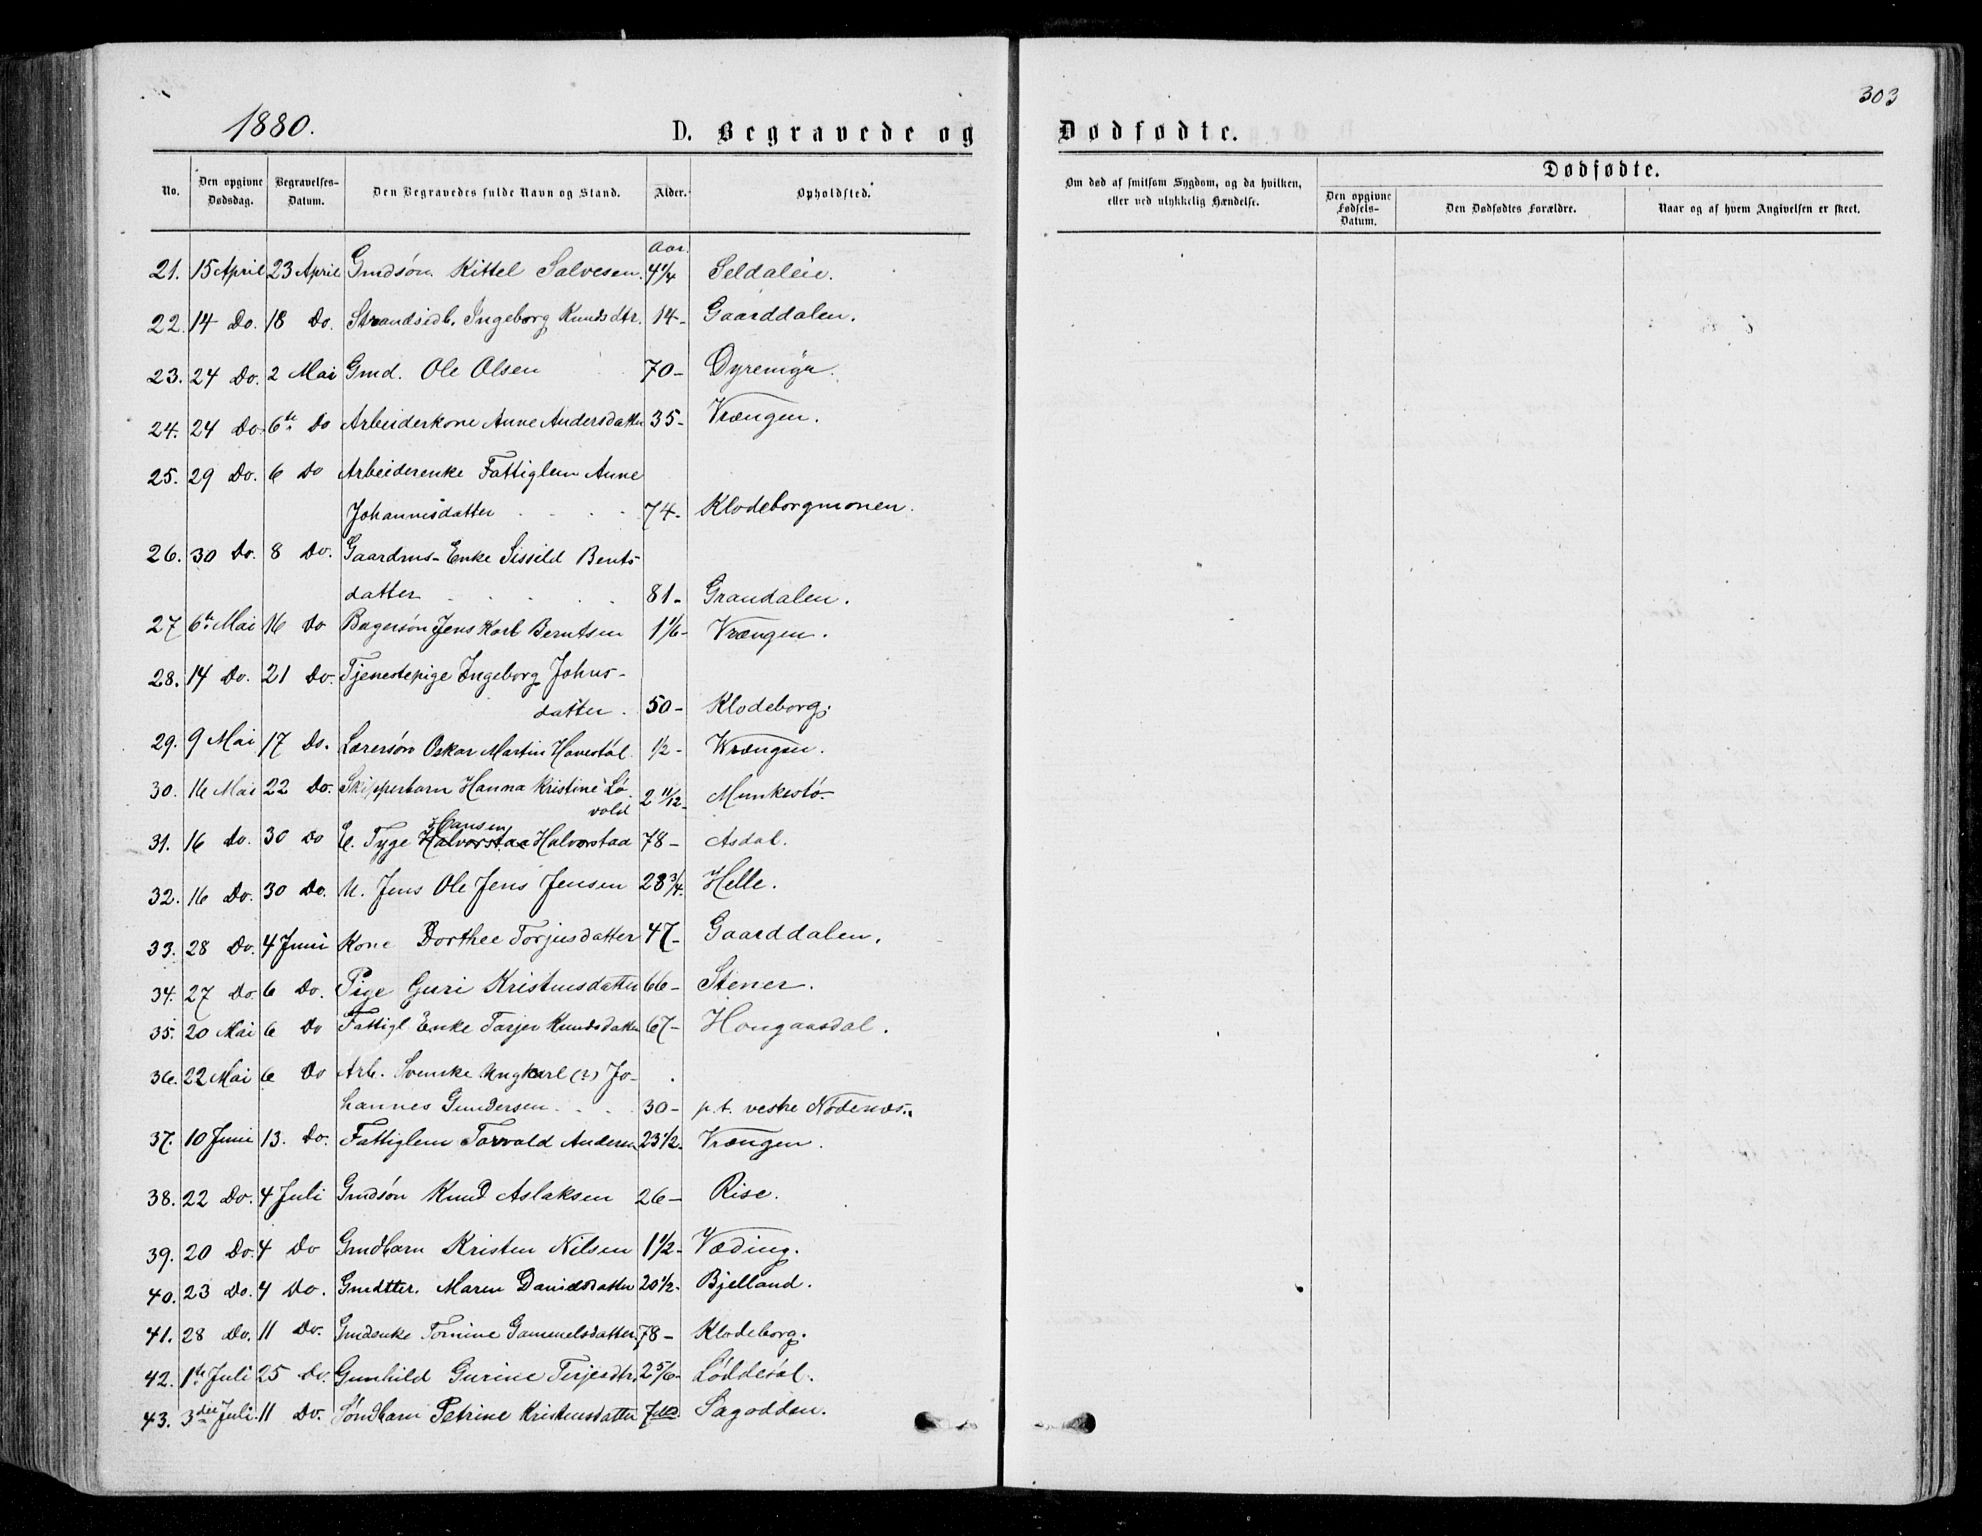 303
1880.
D. Begravede og Dødfødte.
No. Den opgivne Dødsdag. Begravelses-Datum. Den Begravedes fulde Navn og Stand. Alder. Opholdsted.
Om død af smitsom Sygdom, og da hvilken, eller ved ulykkelig Hændelse.
Dødfødte.
Den opgivne Fødsels-Datum. Den Dødfødtes Forældre. Naar og af hvem Angivelsen er skeet.
Aar.
21. 15 April 23 April Gmdsøn Kittel Salvesen. 4 1/4 Seldaleie.
22. 14 Do. 18 Do. Strandsidb. Ingeborg Knudsdtr. 14- Gaarddalen.
23. 24 Do. 2 Mai Gmd. Ole Olsen 70-
24. 24 Do. 6te Do Arbeiderkone Anne Andersdatter 35- Vrængen.
25. 29 Do. 6 Do Arbeiderenke Fattiglem Anne
Johannisdatter 74- Klodeborgmonen.
26. 30 Do. 8 Do. Gaardms-Enke Sissild Bents-
datter 81- Grandalen.
27 6te Mai 16 Do Bagersøn Jens Karl Berntsen 1 1/6- Vrængen.
28. 14 Do. 21 Do. Tjenestepige Ingeborg Johns-
datter. 50- Klodeborg.
29. 9 Mai 17 Do. Lærersøn Oskar Martin Havestøl 1/2- Vrængen.
30. 16 Mai 22 Do. Skipperbarn Hanna Kristine Lø-
vold 2 11/12- Munkestø-
Hansen
31. 16 Do. 30 Do E. Tyge Halvorstaa Halvorstad 78- Asdal.
32. 16 Do. 30 Do. U. Jens Ole Jens Jensen 28 3/4. Helle.
33. 28 Do. 4 Juni Kone Dorthee Torjusdatter 47- Gaarddalen.
34. 27 Do. 6 Do. Pige Guri Kristensdatter 66- Stener.
35. 20 Mai 6 Do Fattigl Enke Tarjer Knudsdatter 67- Hougaasdal.
36. 22 Mai 6 Do Arb. Svenske Ungkarl (?) Jo-
hannes Gundersen 30- p.t. vestre Nødenæs.
37. 10 Juni 13. Do. Fattiglem Torvald Andersen 23 1/2- Vrængen.
38. 22 Do. 4 Juli Gmdsøn Knud Aslaksen 26- Rise.
39. 20 Do. 4 Do Gmdbarn Kristen Nilsen 1 1/2- Væding.
40. 23 Do. 4 Do. Gmdtter. Maren Danielsdatter 20 1/2- Bjelland.
41. 28 Do. 11 Do. Gmdenke Tomine Gammelsdatter 78- Klodeborg.
42. 1te Juli 25 Do. Gunhild Gurine Terjesdtr. 2 5/6- Løddesøl.
43. 3die Juli 11 Do. Søndbarn Petrine Kristensdatter Sagodden.